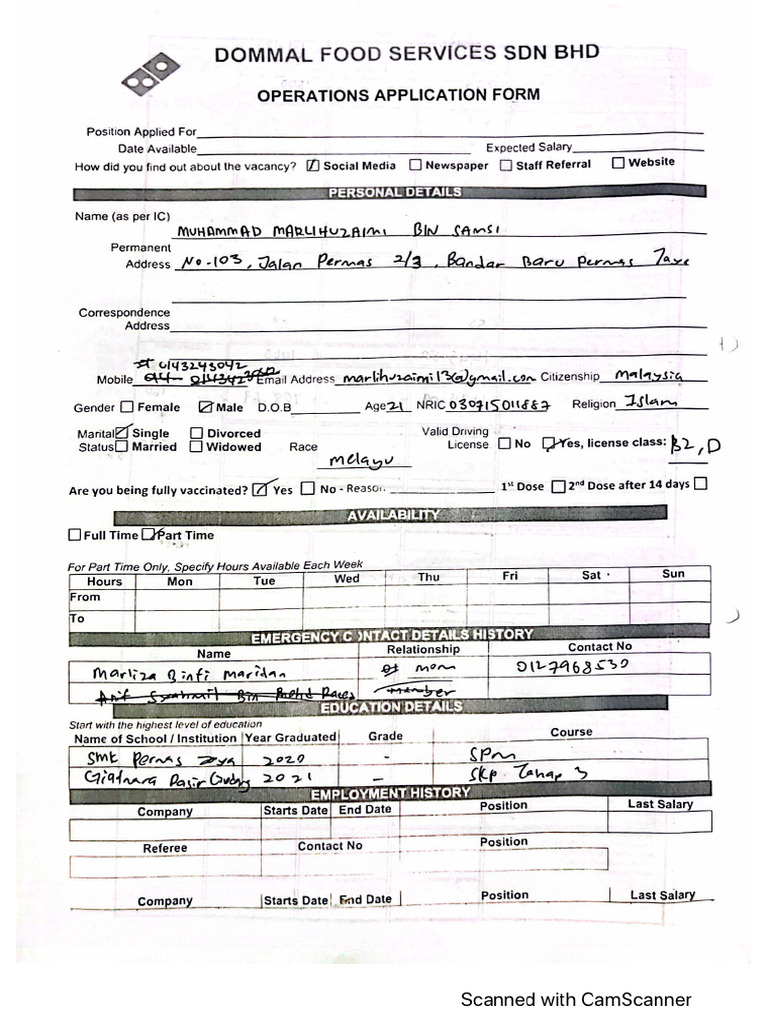 DOMMAL FOOD SERVICES SDN BHD
OPERATIONS APPLICATION FORM
Position Applied For
Date Available Expected Salary
How did you find out about the vacancy? Social Media Newspaper Staff Referral Website
PERSONAL DETAILS
Name (as per IC) MUHAMMAD MARLIHUZAIMI BIN SAMSI
Permanent
Address No-103, Jalan Permas 2/3, Bandar Baru Permas Jaya
Correspondence
Address
0143243042
Mobile Email Address marlihuzaimi13@gmail.com Citizenship Malaysia
Gender Female Male D.O.B Age 21 NRIC 030715011887 Religion Islam
Marital Single Divorced Valid Driving
Status Married Widowed Race Melayu License No Yes, license class: B2, D
Are you being fully vaccinated? Yes No - Reason. 1st Dose 2nd Dose after 14 days
AVAILABILITY
Full Time Part Time
For Part Time Only, Specify Hours Available Each Week
Hours Mon Tue Wed Thu Fri Sat Sun
From
To
EMERGENCY CONTACT DETAILS HISTORY
Name Relationship Contact No
Marliza Binti Maridan mom 0127968530
member
EDUCATION DETAILS
Start with the highest level of education
Name of School / Institution Year Graduated Grade Course
SMK Permas Jaya 2020 - SPM
Giatmara Pasir Gudang 2021 - SKP Tahap 3
EMPLOYMENT HISTORY
Company Starts Date End Date Position Last Salary
Referee Contact No Position
Company Starts Date End Date Position Last Salary
Scanned with CamScanner